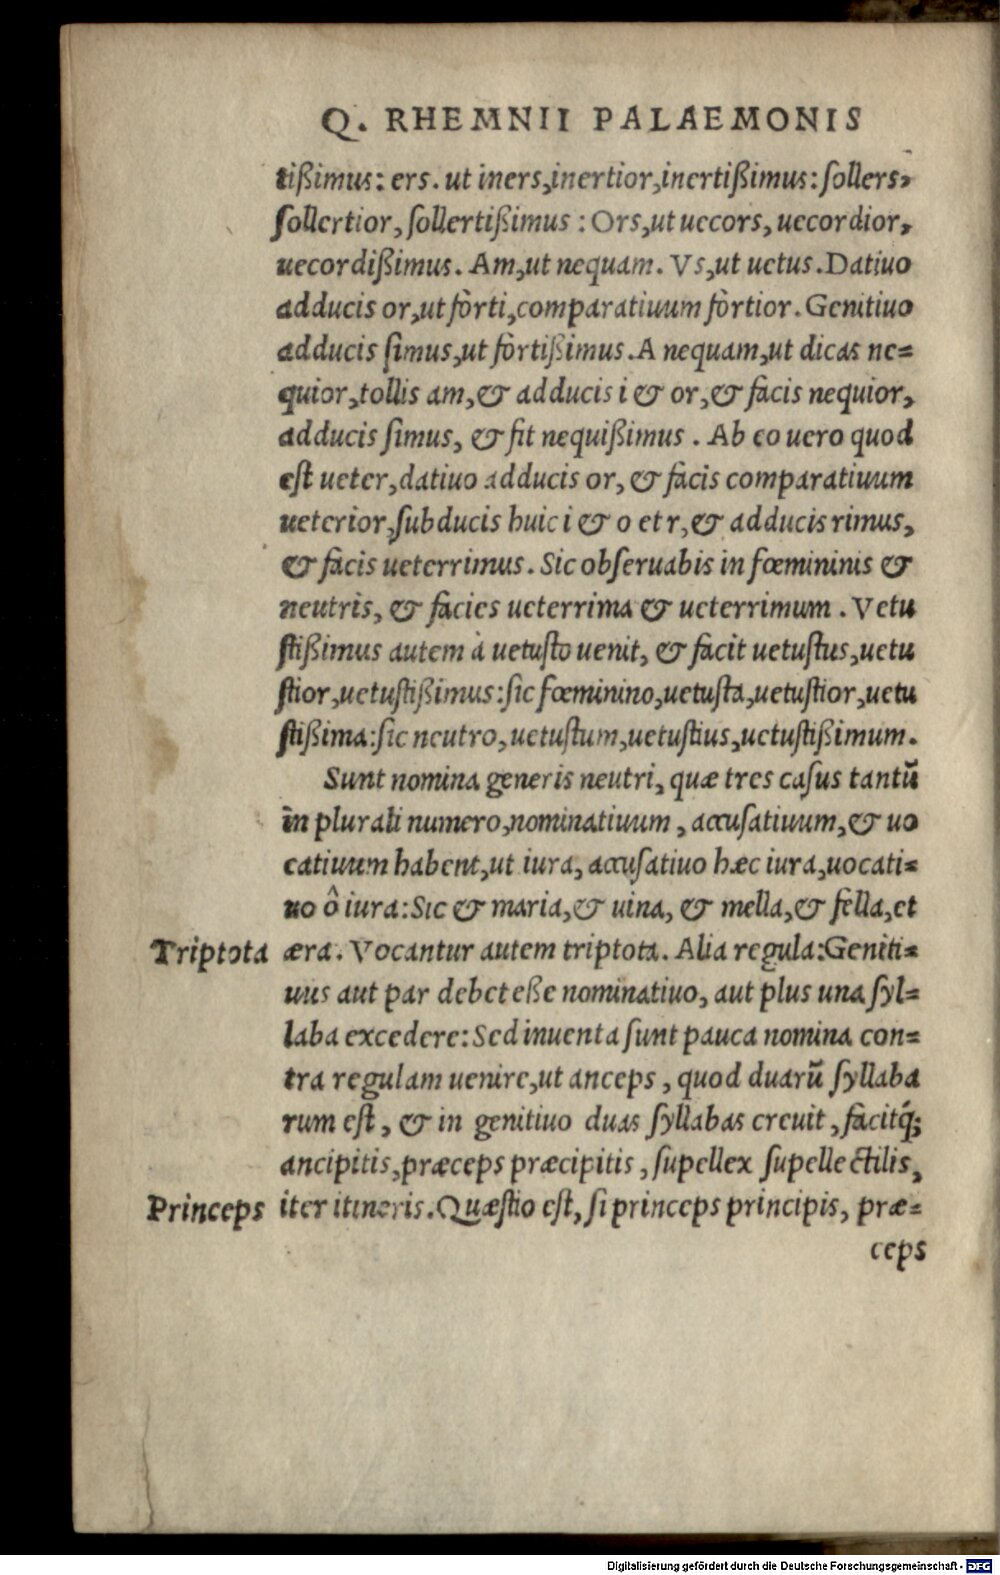 Q. RHEMNII PALAEMONIS
tißimus: ers. ut iners, inertior, inertißimus: sollers,
sollertior, sollertißimus : Ors, ut uecors, uecordior,
uecordißimus. Am, ut nequam. Vs, ut uetus. Datiuo
adducis or, ut fòrti, comparatiuum fòrtior. Genitiuo
adducis simus, ut fòrtißimus. A nequam, ut dicas ne=
quior, tollis am, & adducis i & or, & facis nequior,
adducis simus, & fit nequißimus . Ab eo uero quod
est ueter, datiuo adducis or, & facis comparatiuum
ueterior, subducis huic i & o et r, & adducis rimus,
& facis ueterrimus. Sic obseruabis in fœmininis &
neutris, & facies ueterrima & ueterrimum . Vetu
stißimus autem à uetusto uenit, & facit uetustus, uetu
stior, uetustißimus: sic fœminino, uetusta, uetustior, uetu
stißima: sic neutro, uetustum, uetustius, uetustißimum.
Sunt nomina generis neutri, quæ tres casus tantũ
in plurali numero, nominatiuum , accusatiuum, & uo
catiuum habent, ut iura, accusatiuo hæc iura, uocati=
uo ô iura: Sic & maria, & uina, & mella, & fella, et
Triptota æra. Vocantur autem triptota. Alia regula: Geniti=
uus aut par debet eße nominatiuo, aut plus una syl=
laba excedere: Sed inuenta sunt pauca nomina con=
tra regulam uenire, ut anceps , quod duarũ syllaba
rum est , & in genitiuo duas syllabas creuit , facitq́;
ancipitis, præceps præcipitis , supellex supellectilis,
Princeps iter itineris. Quæstio est, si princeps principis, præ=
ceps
Digitalisierung gefördert durch die Deutsche Forschungsgemeinschaft - DFG